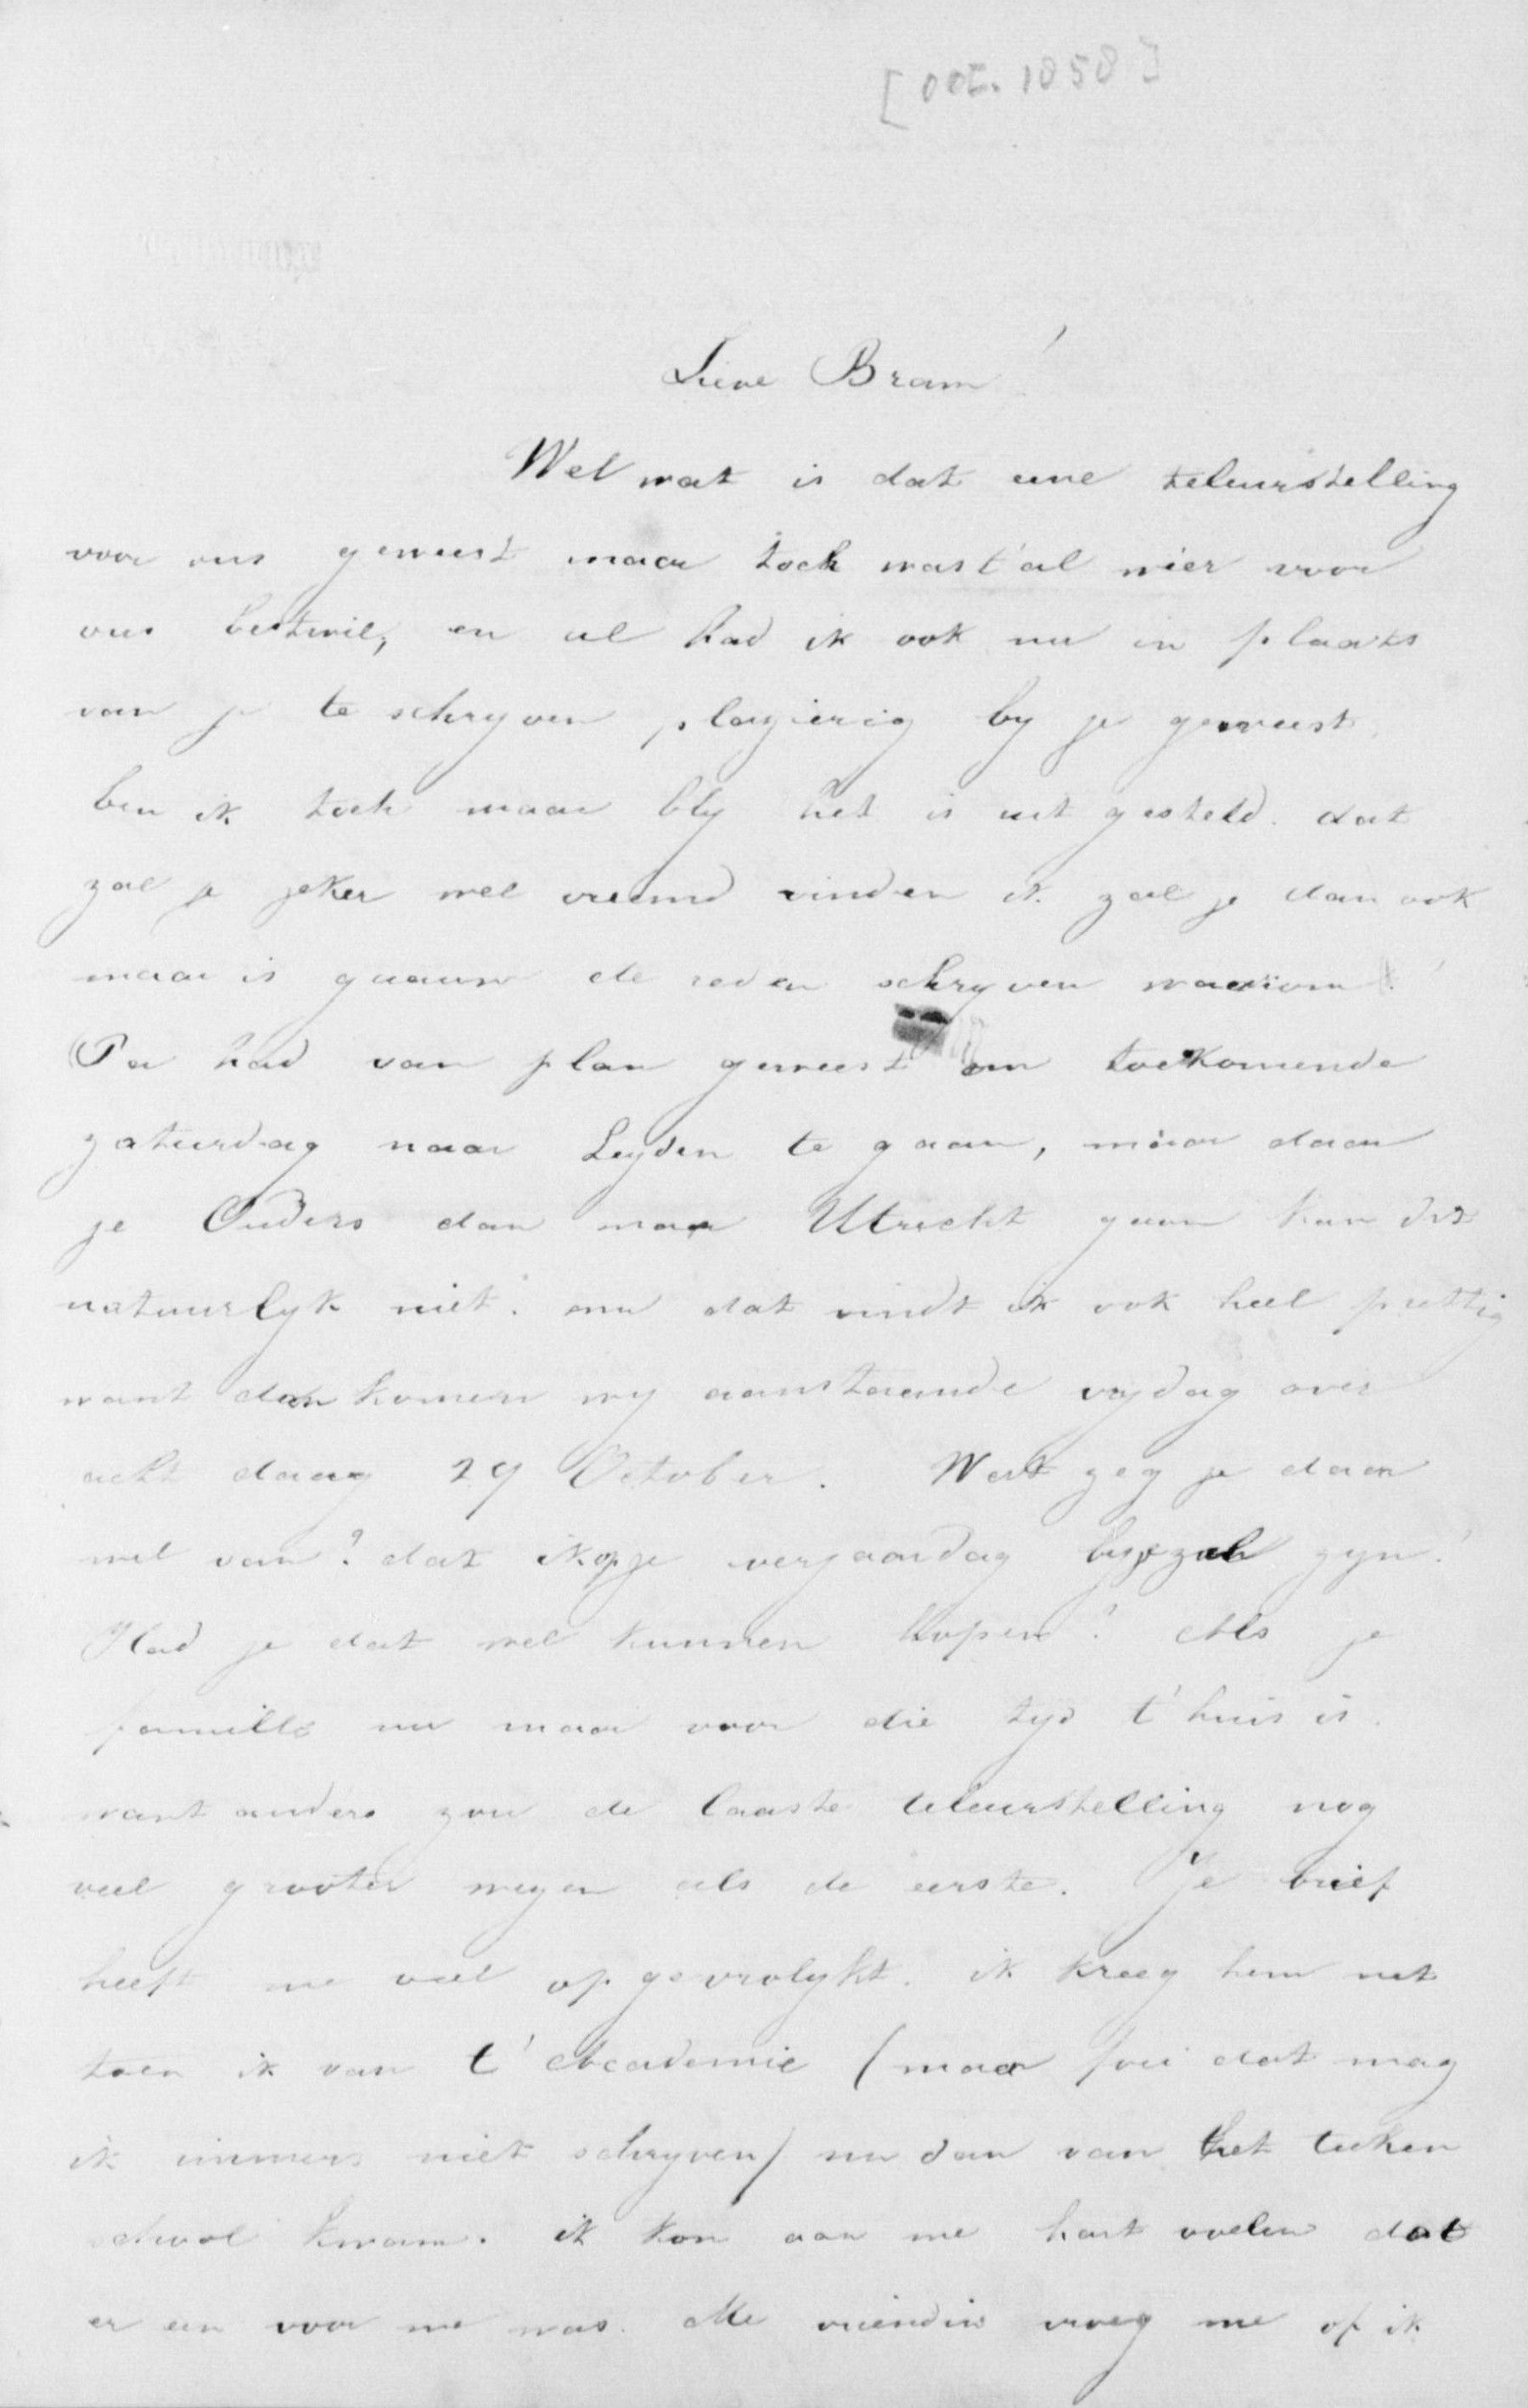 [OCT. 1858]
Lieve Bram!
Wel wat is dat eene teleurstelling
voor ons geweest maar toch was t'al wéér voor
ons bestwil, en al had ik ook nu in plaats
van je te schryven plazierig by je geweest,
ben ik toch maar bly het is uit gesteld. dat
zal je zeker wel vreemd vinden ik zal je dan ook
maar is gaauw de reden schryven waarom!
Pa had van plan geweest om toekomende
zaturdag naar Leyden te gaan, maar daar
je Ouders dan naar Utrecht gaan kan dit
natuurlyk niet. nu dat vindt ik ook heel prettig
want dan komen wy aanstaande vrydag over
acht daag 29 October. Wat zeg je daar
wel van? dat ik op je verjaardag by je zal zyn!
Had je dat wel kunnen hopen? Als je
famille nu maar voor die tyd t'huis is.
want anders zou de laaste teleurstelling nog
veel grooter wezen als de eerste. Je brief
heeft me veel opgevrolykt. ik kreeg hem net
toen ik van t' Academie (maar foei dat mag
ik immers niet schryven) nu dan van het teeken
school kwam. ik kon aan me hart voelen dat
er een voor me was. Me vriendin vroeg me of ik